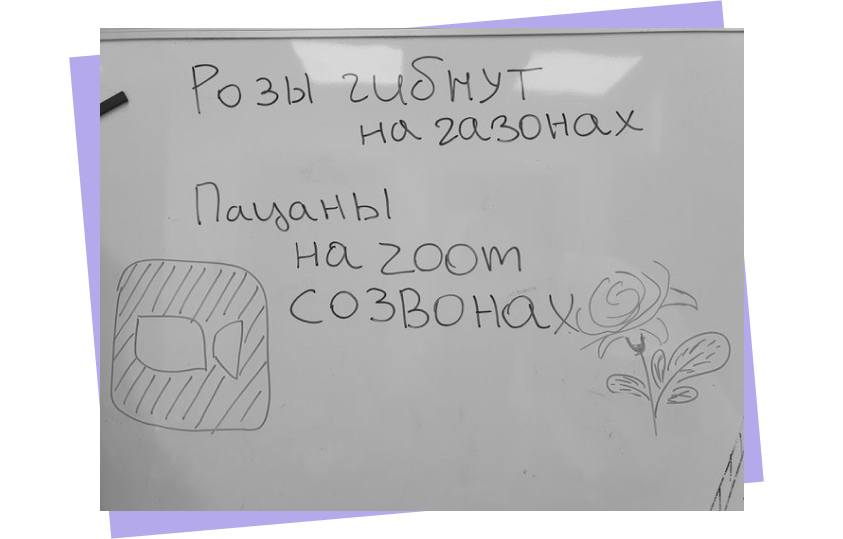 Розы гибнут
на газонах
Пацаны
на zoom
созвонах